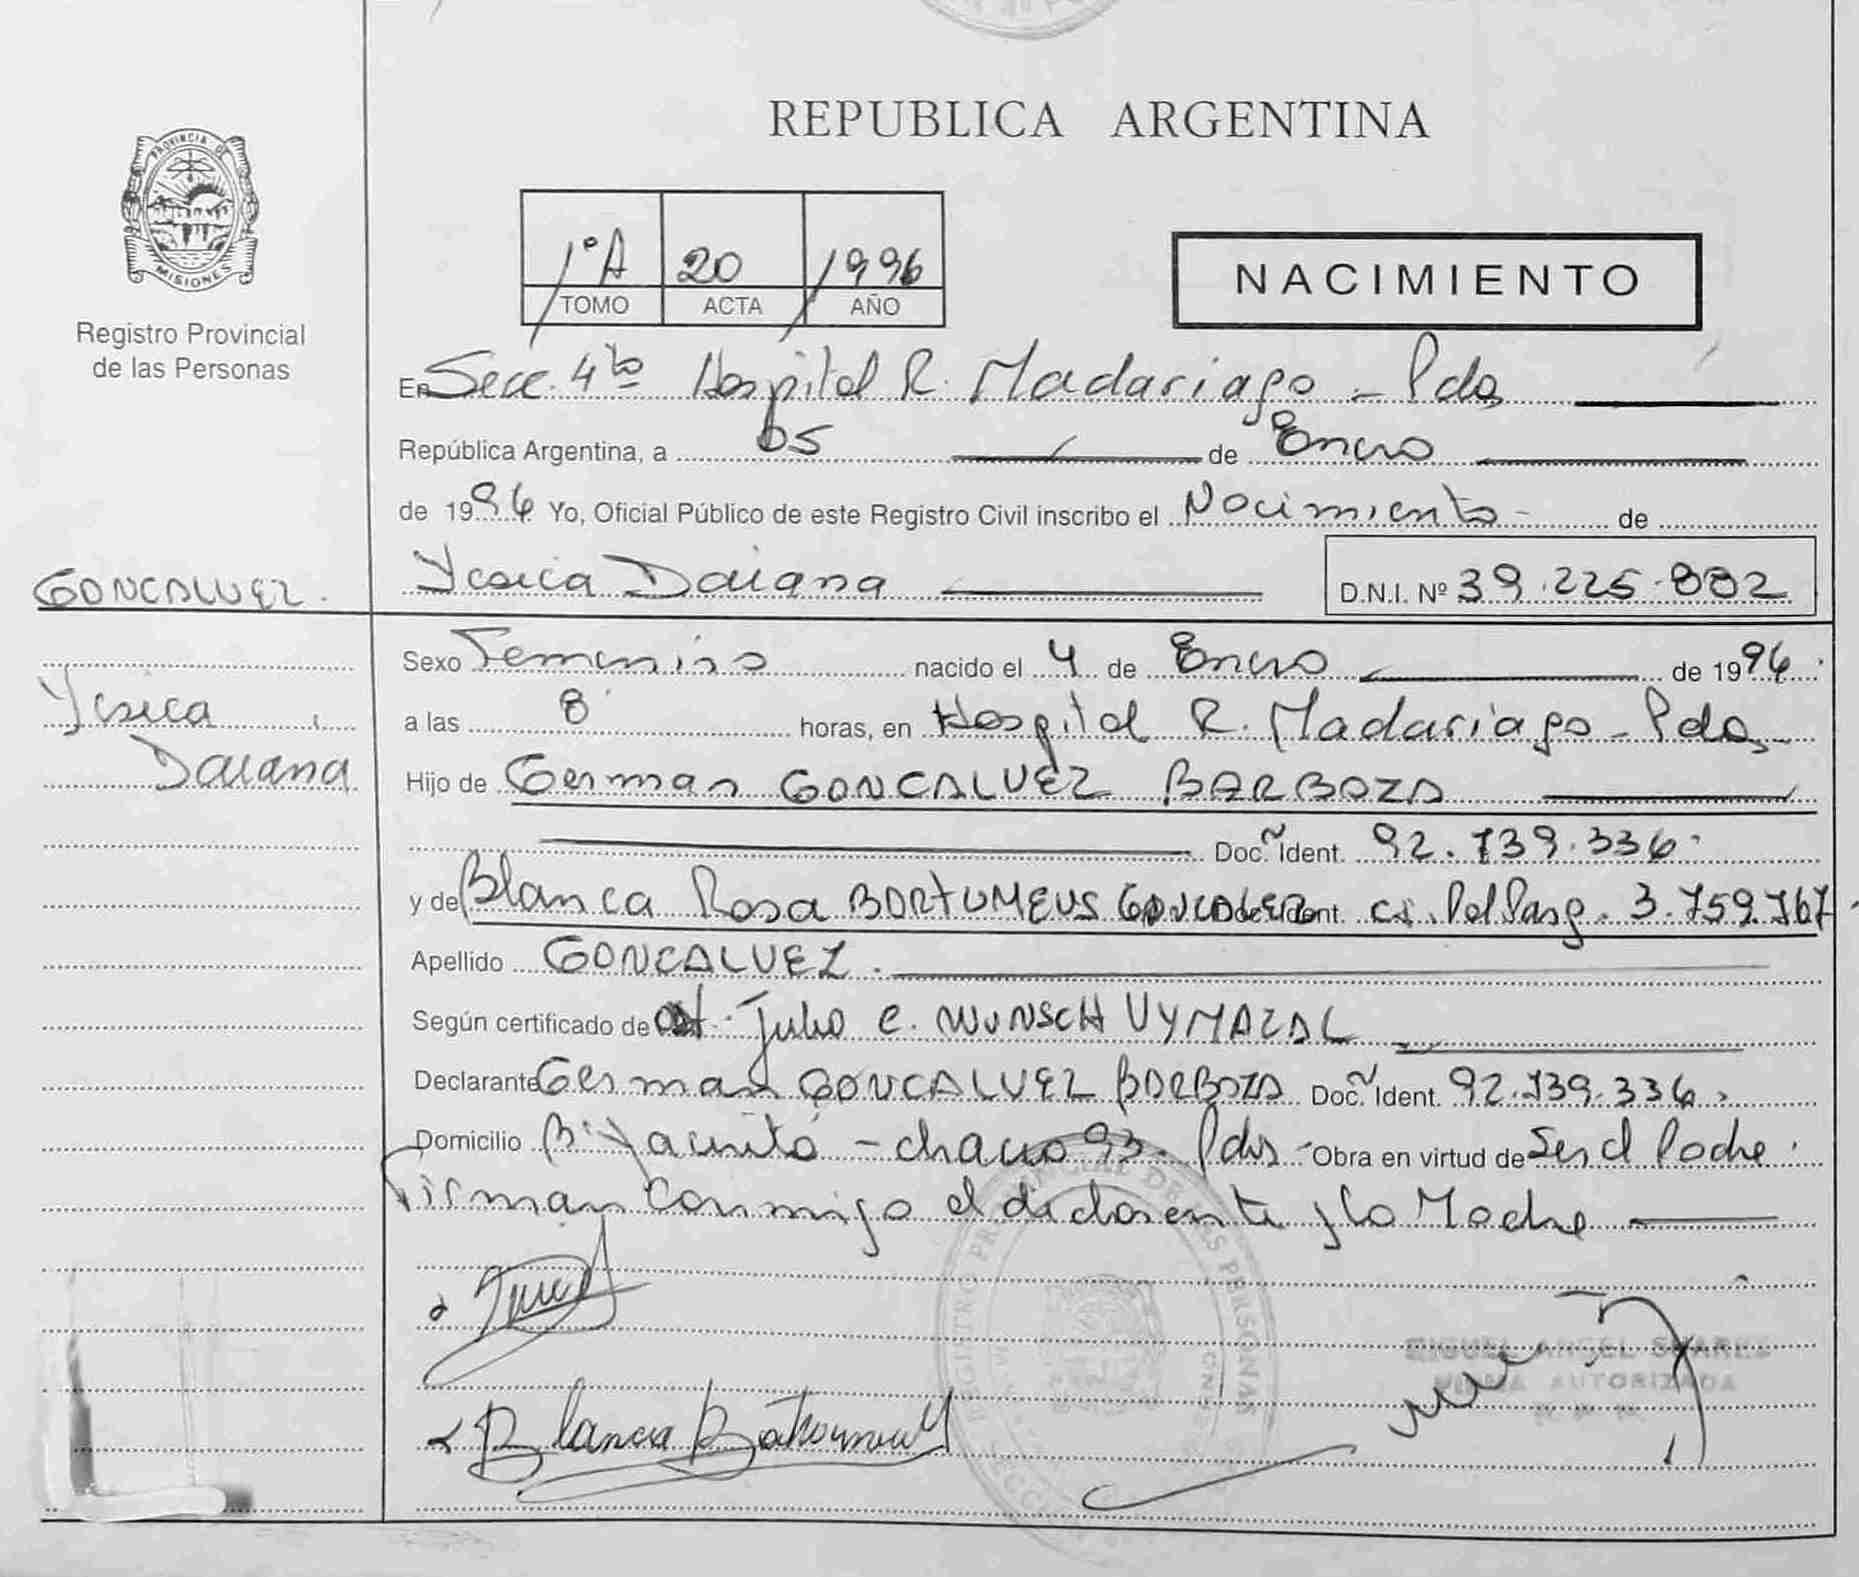 REPUBLICA ARGENTINA
PROVINCIA DE
MISIONES
Registro Provincial
de las Personas
1°A 20 1996
TOMO ACTA AÑO
NACIMIENTO
En Secc. 4ta Hospital R. Madariaga - Pdas
República Argentina, a 05 de Enero
de 1996 Yo, Oficial Público de este Registro Civil inscribo el Nacimiento - de
GONCALVEZ.
Yesica Daiana D.N.I. Nº 39.225.882
Sexo Femenino nacido el 4 de Enero de 1996.
Yesica
Daiana
a las 8 horas, en Hospital R. Madariaga - Pdas -
Hijo de German GONCALVEZ BARBOZA
Doc. Ident. 92.739.336.
y de Blanca Rosa BORTUMEUS Ident. c.i. Pol Parag. 3.759.767
Apellido GONCALVEZ.
Según certificado de Julio C. WUNSCH VYMAZAL
Declarante German GONCALVEZ BARBOZA Doc. Ident. 92.739.336.
Domicilio B° Yacuitó - chacra 93. Pdas - Obra en virtud de Ser el Padre.
Firman conmigo el declarante y la Madre
REGISTRO PROVINCIAL DE LAS PERSONAS
MIGUEL ANGEL SUAREZ
FIRMA AUTORIZADA
Blanca